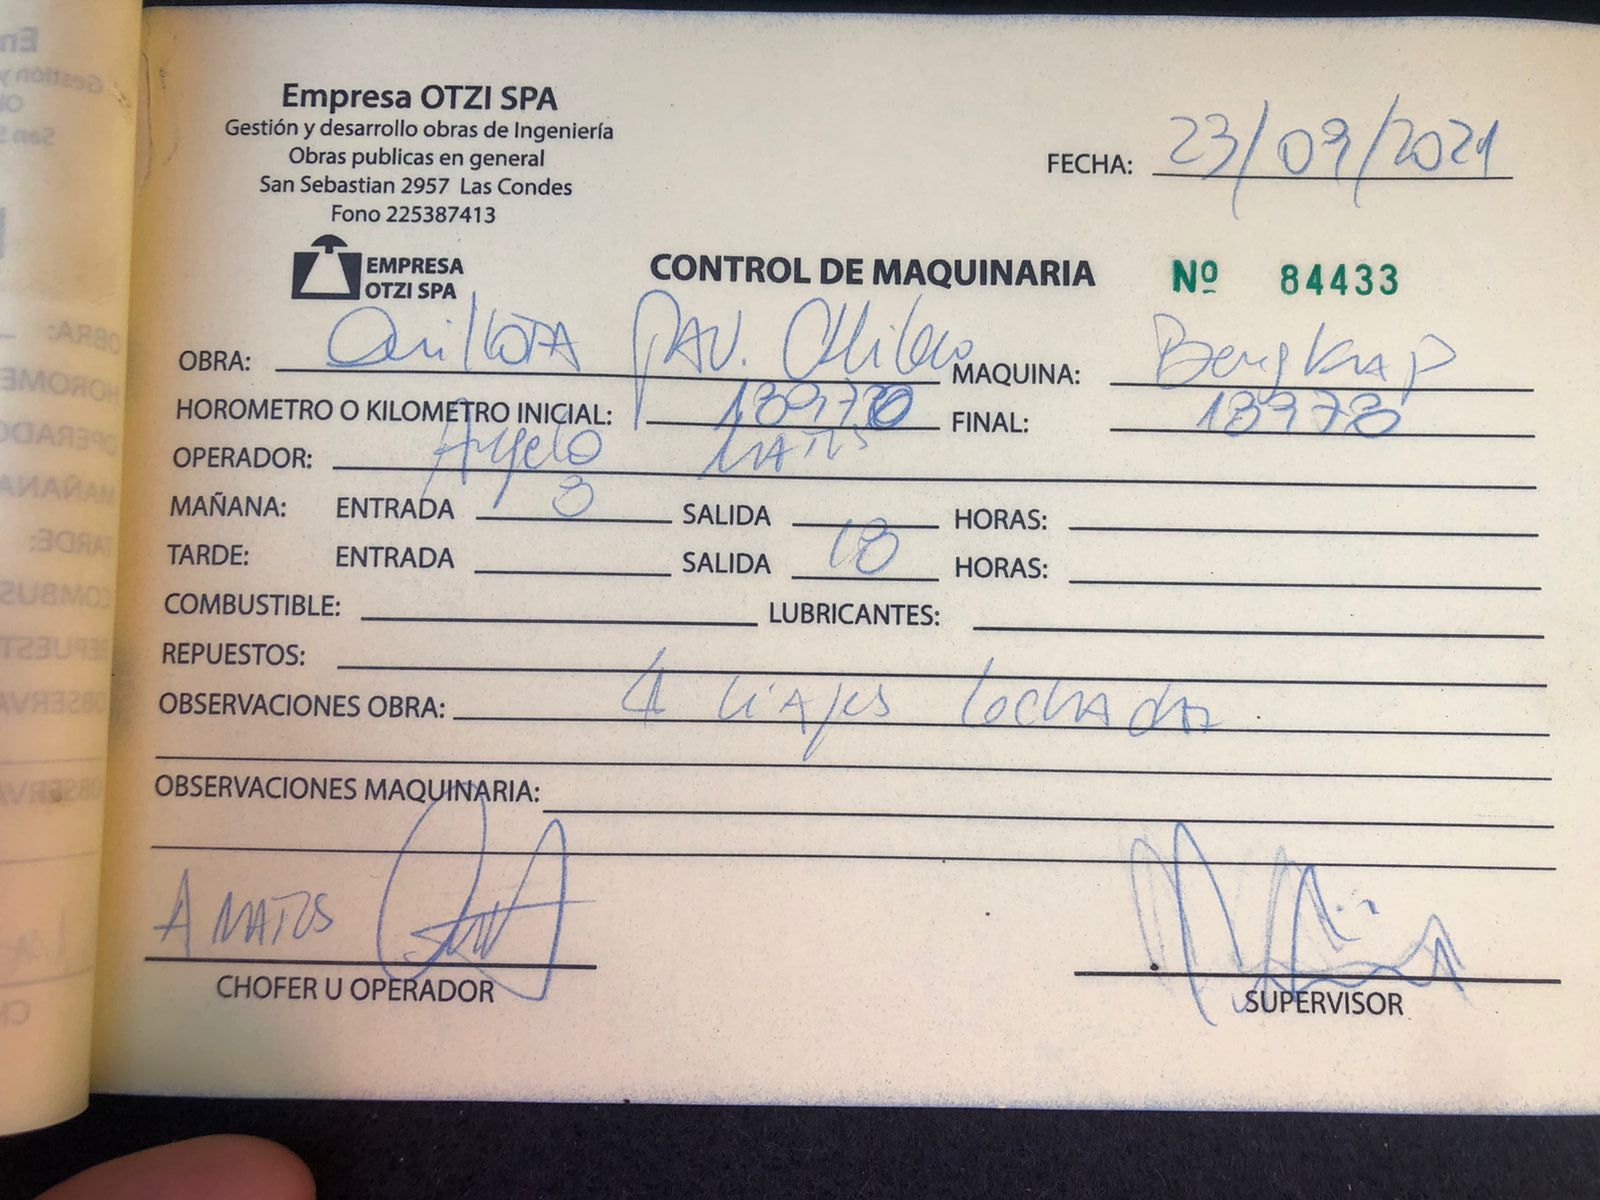 Empresa OTZI SPA
Gestión y desarrollo obras de Ingeniería
Obras publicas en general
San Sebastian 2957 Las Condes
Fono 225387413
FECHA: 23/09/2021
EMPRESA
OTZI SPA
CONTROL DE MAQUINARIA Nº 84433
OBRA: Quillota PAV. MAQUINA:
HOROMETRO O KILOMETRO INICIAL: FINAL:
OPERADOR: Angelo MATUS
MAÑANA: ENTRADA SALIDA HORAS:
TARDE: ENTRADA SALIDA 18 HORAS:
COMBUSTIBLE: LUBRICANTES:
REPUESTOS:
OBSERVACIONES OBRA: 4 viajes lechada
OBSERVACIONES MAQUINARIA:
A MATUS
CHOFER U OPERADOR
SUPERVISOR